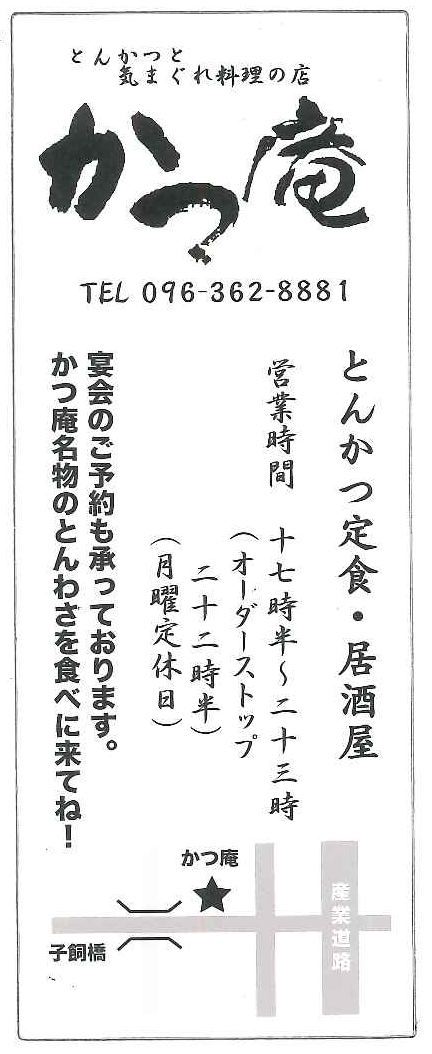 とんかつと
気まぐれ料理の店
かつ庵
TEL 096-362-8881
とんかつ定食・居酒屋
営業時間 十七時半〜二十三時
(オーダーストップ
二十二時半)
(月曜定休日)
宴会のご予約も承っております。
かつ庵名物のとんわさを食べに来てね!
かつ庵
産業道路
子飼橋